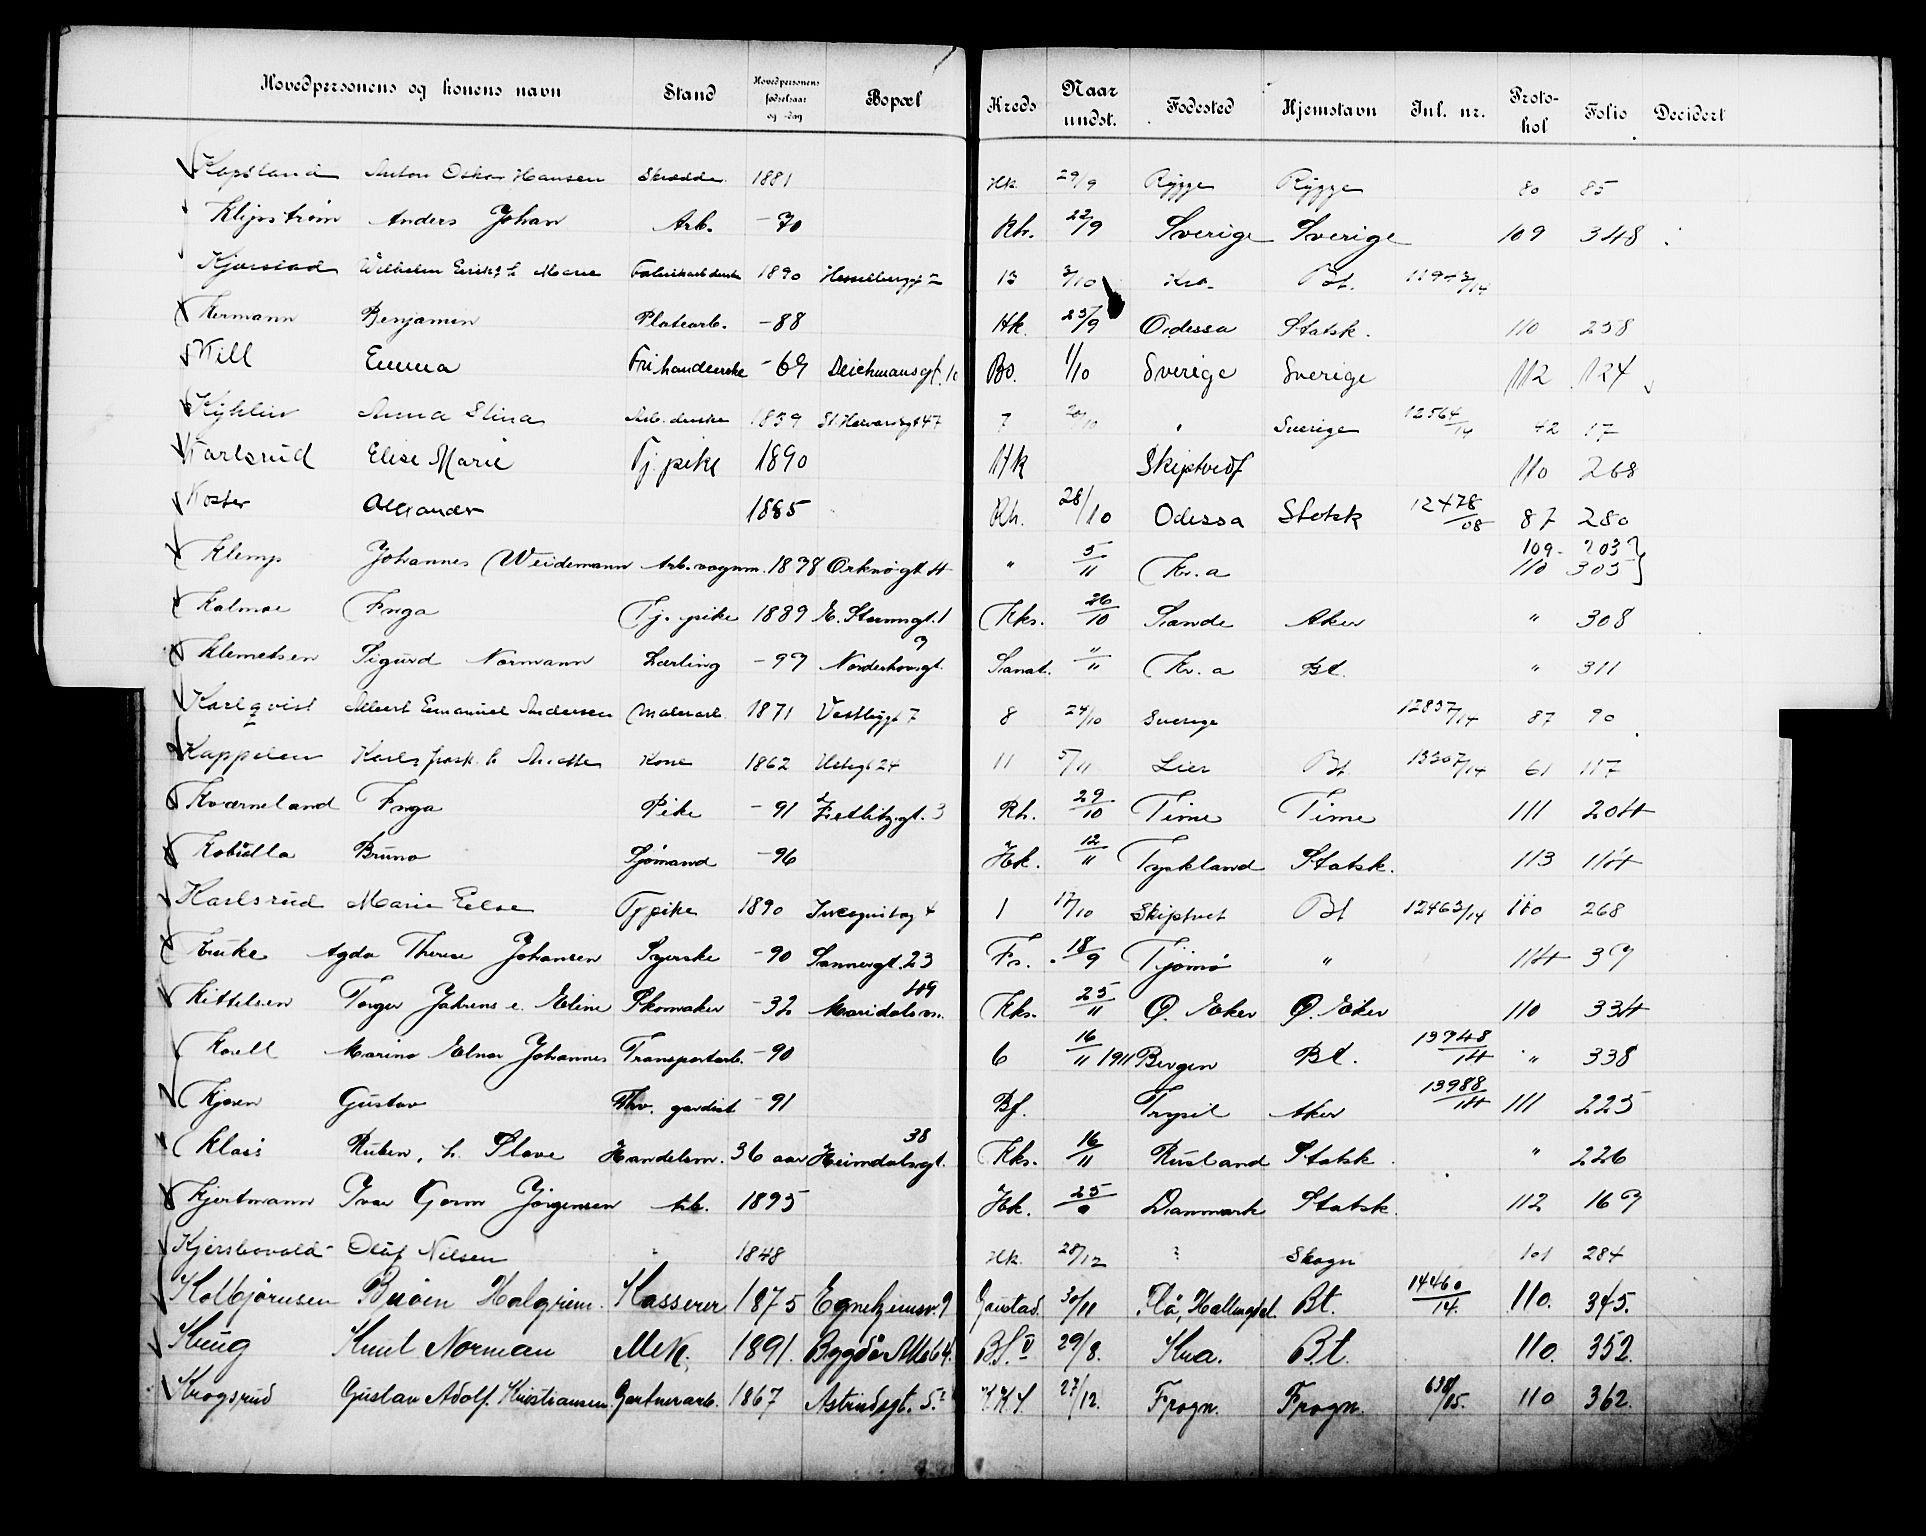 Hovedpersonens og konens navn Stand Hovedpersonens fødselsaar og -dag Bopæl Kreds Naar undst. Fødested Hjemstavn Jnl. nr. Protokol Folio Decidert
Kopsland Anton Oskar Hansen Skrædder 1881 Hk. 29/9 Rygge Rygge 80 85
Klipstrøm Anders Johan Arb. -70 Rh. 22/9 Sverige Sverige 109 348
Kjørstad Wilhelm h. Marie 1890 13 3/10 Kra. Bt.
Kermann Benjamin Platearb. -88 Hk. 25/9 Odessa Statsk. 110 258
Kill Emma Frihandlerske -69 Deichmansgt. Bo. 1/10 Sverige Sverige 112 124
Kyhlin Anna Stina Arb. 1839 St. Halvardsgt 47 7 20/10 " Sverige 12564/14 42 17
Karlsrud Elise Marie Tj. pike 1890 Hk Skiptvedt 110 268
Koster Alexander 1885 Rh. 28/10 Odessa Statsk 12478/08 87 280
Klemp Johannes Weidemann Arb. vognm. 1878 Orknøgt 4 " 5/11 Kr.a 109 - 203 } 110 305 }
Kolmoe Inga Tj. pike 1889 E. Stormsgt. 1 Kks. 26/10 Sande Aker " 308
Klemetsen Sigurd Normann Lærling -99 Norderhovsgt. 9 Sanat. "/11 Kr.a Bt. " 311
Karlqvist Albert Emanuel Andersen Malerarb. 1871 Vestbygt 7 8 24/10 Sverige 12837/14 87 90
Kappelen Karls h. Kone 1862 24 11 5/11 Lier Bt 13307/14 61 117
Kværneland Inga Pike -91 Zetlitzgt. 3 Rh. 29/10 Time Time 111 204
Kobiella Bruno Sjømand -96 Hk. 12/11 Tyskland Statsk. 113 114
Karlsrud Marie Elise Tjpike 1890 Incognitog 4 1 17/10 Skiptvet Bt 12463/14 110 268
Agda Therese Johansen Syerske -90 Sannergt. 23 Fr. 18/9 Tjømø " 114 39
Kittelsen Torger Jahrens e. Eline Skomaker -32 Maridalsvn. 49 Kks. 25/11 Ø. Eker Ø. Eker 110 334
Koell Marino Elnar Johannes Transportarb. -90 6 16/11 1911 Bergen Bt. 13748/14 " 338
Kjøsen Gustav gardist -91 Bf. Trysil Aker 13988/14 111 225
Klois Ruben, h. Slave Handelsm. 36 aar Heimdalsgt. 38 Kks. 16/11 Rusland Statsk. " 226
Kjertmann Ivar Gorm Jørgensen Arb. 1895 Hk. Danmark Statsk. 112 169
Kjersbovald Oluf Nilsen " 1848 Hk. 28/12 ? Skogn 101 284
Kolbjørnsen Buøen Halgrim. Kasserer 1875 Egnehjemsv. 9 Gaustad. 30/11 Flå, Hallingdal. Bt. 14460/14. 110. 345.
Krug Knut Norman Mek. 1891. Bygdø Alle 64. Bf. V 29/8. Kra. Bt. 110. 352.
Krogsrud Gustav Adolf Kristiansen Gartnerarb. 1867 Astridsgt. 5. K.K.S. 27/12. Frogn. Frogn. 110 362.